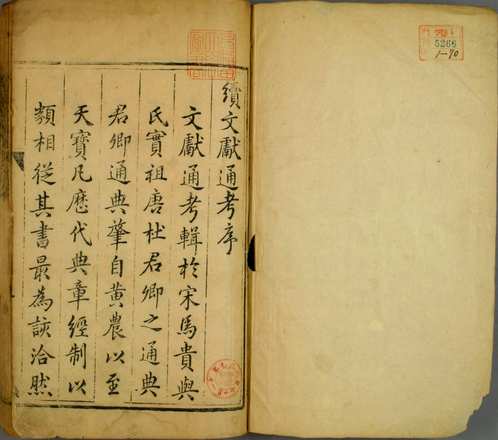 續文獻通考序
文獻通考輯於宋馬貴與
氏實祖唐杜君卿之通典
君卿通典肇自黄農以至
天寶凡歷代典章經制以
類相從其書最為詼洽然
5266
1-70